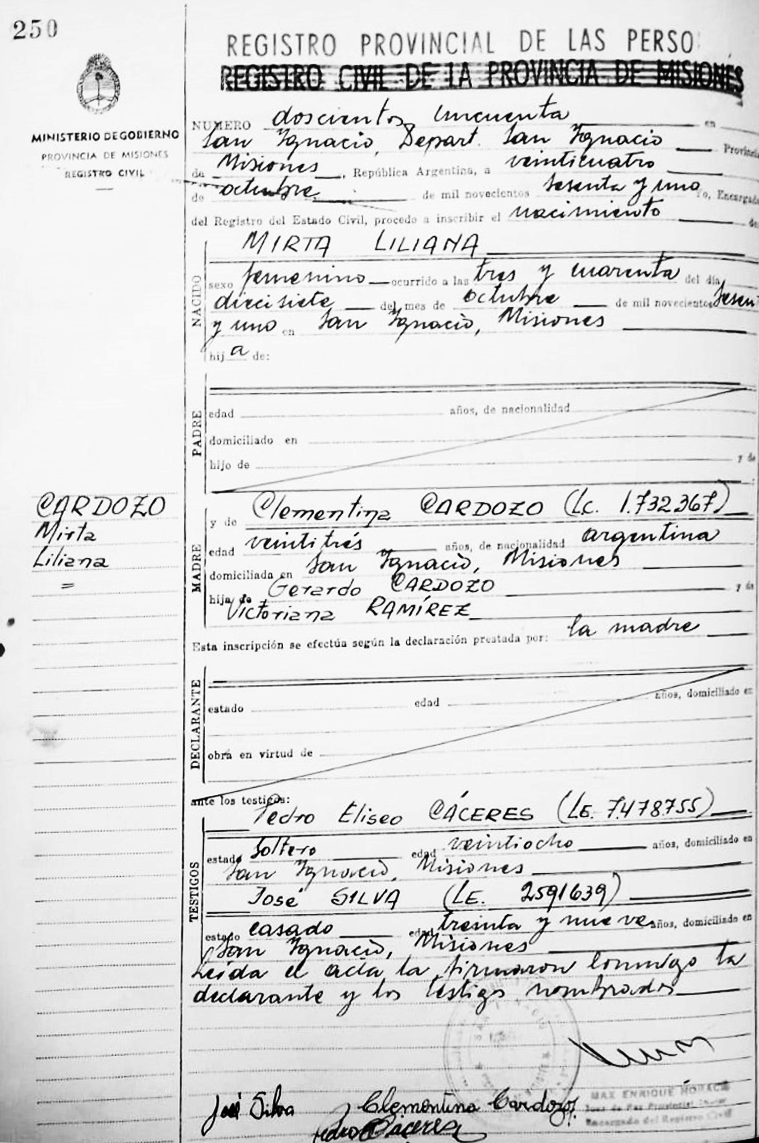 250
REGISTRO PROVINCIAL DE LAS PERSO
REGISTRO CIVIL DE LA PROVINCIA DE MISIONES
MINISTERIO DE GOBIERNO
PROVINCIA DE MISIONES
REGISTRO CIVIL
NUMERO doscientos cincuenta en
San Ignacio, Depart. San Ignacio Provincia
de Misiones, República Argentina, a veinticuatro
de octubre de mil novecientos sesenta y uno Yo, Encargado
del Registro del Estado Civil, procedo a inscribir el nacimiento de
NACIDO
MIRTA LILIANA
sexo femenino ocurrido a las tres y cuarenta del día
diecisiete del mes de octubre de mil novecientos sesen
y uno en San Ignacio, Misiones
hij a de:
PADRE
edad años, de nacionalidad
domiciliado en
hijo de y de
CARDOZO
Mirta
Liliana
=
MADRE
y de Clementina CARDOZO (Lc. 1.732.367)
edad veintitrés años, de nacionalidad argentina
domiciliada en San Ignacio, Misiones
hija de Gerardo CARDOZO y de
Victoriana RAMÍREZ
Esta inscripción se efectúa según la declaración prestada por: la madre
DECLARANTE
estado edad años, domiciliado en
obra en virtud de
ante los testigos:
TESTIGOS
Pedro Eliseo CÁCERES (LE. 7.478755)
estado Soltero edad veintiocho años, domiciliado en
San Ignacio, Misiones
José SILVA (LE. 2591639)
estado casado edad treinta y nueve años, domiciliado en
San Ignacio, Misiones
Leída el acta la firmaron conmigo la
declarante y los testigos nombrados
José Silva Clementina Cardozo
Pedro Caceres
MAX ENRIQUE HORACE
Juez de Paz Provincial
Encargado del Registro Civil